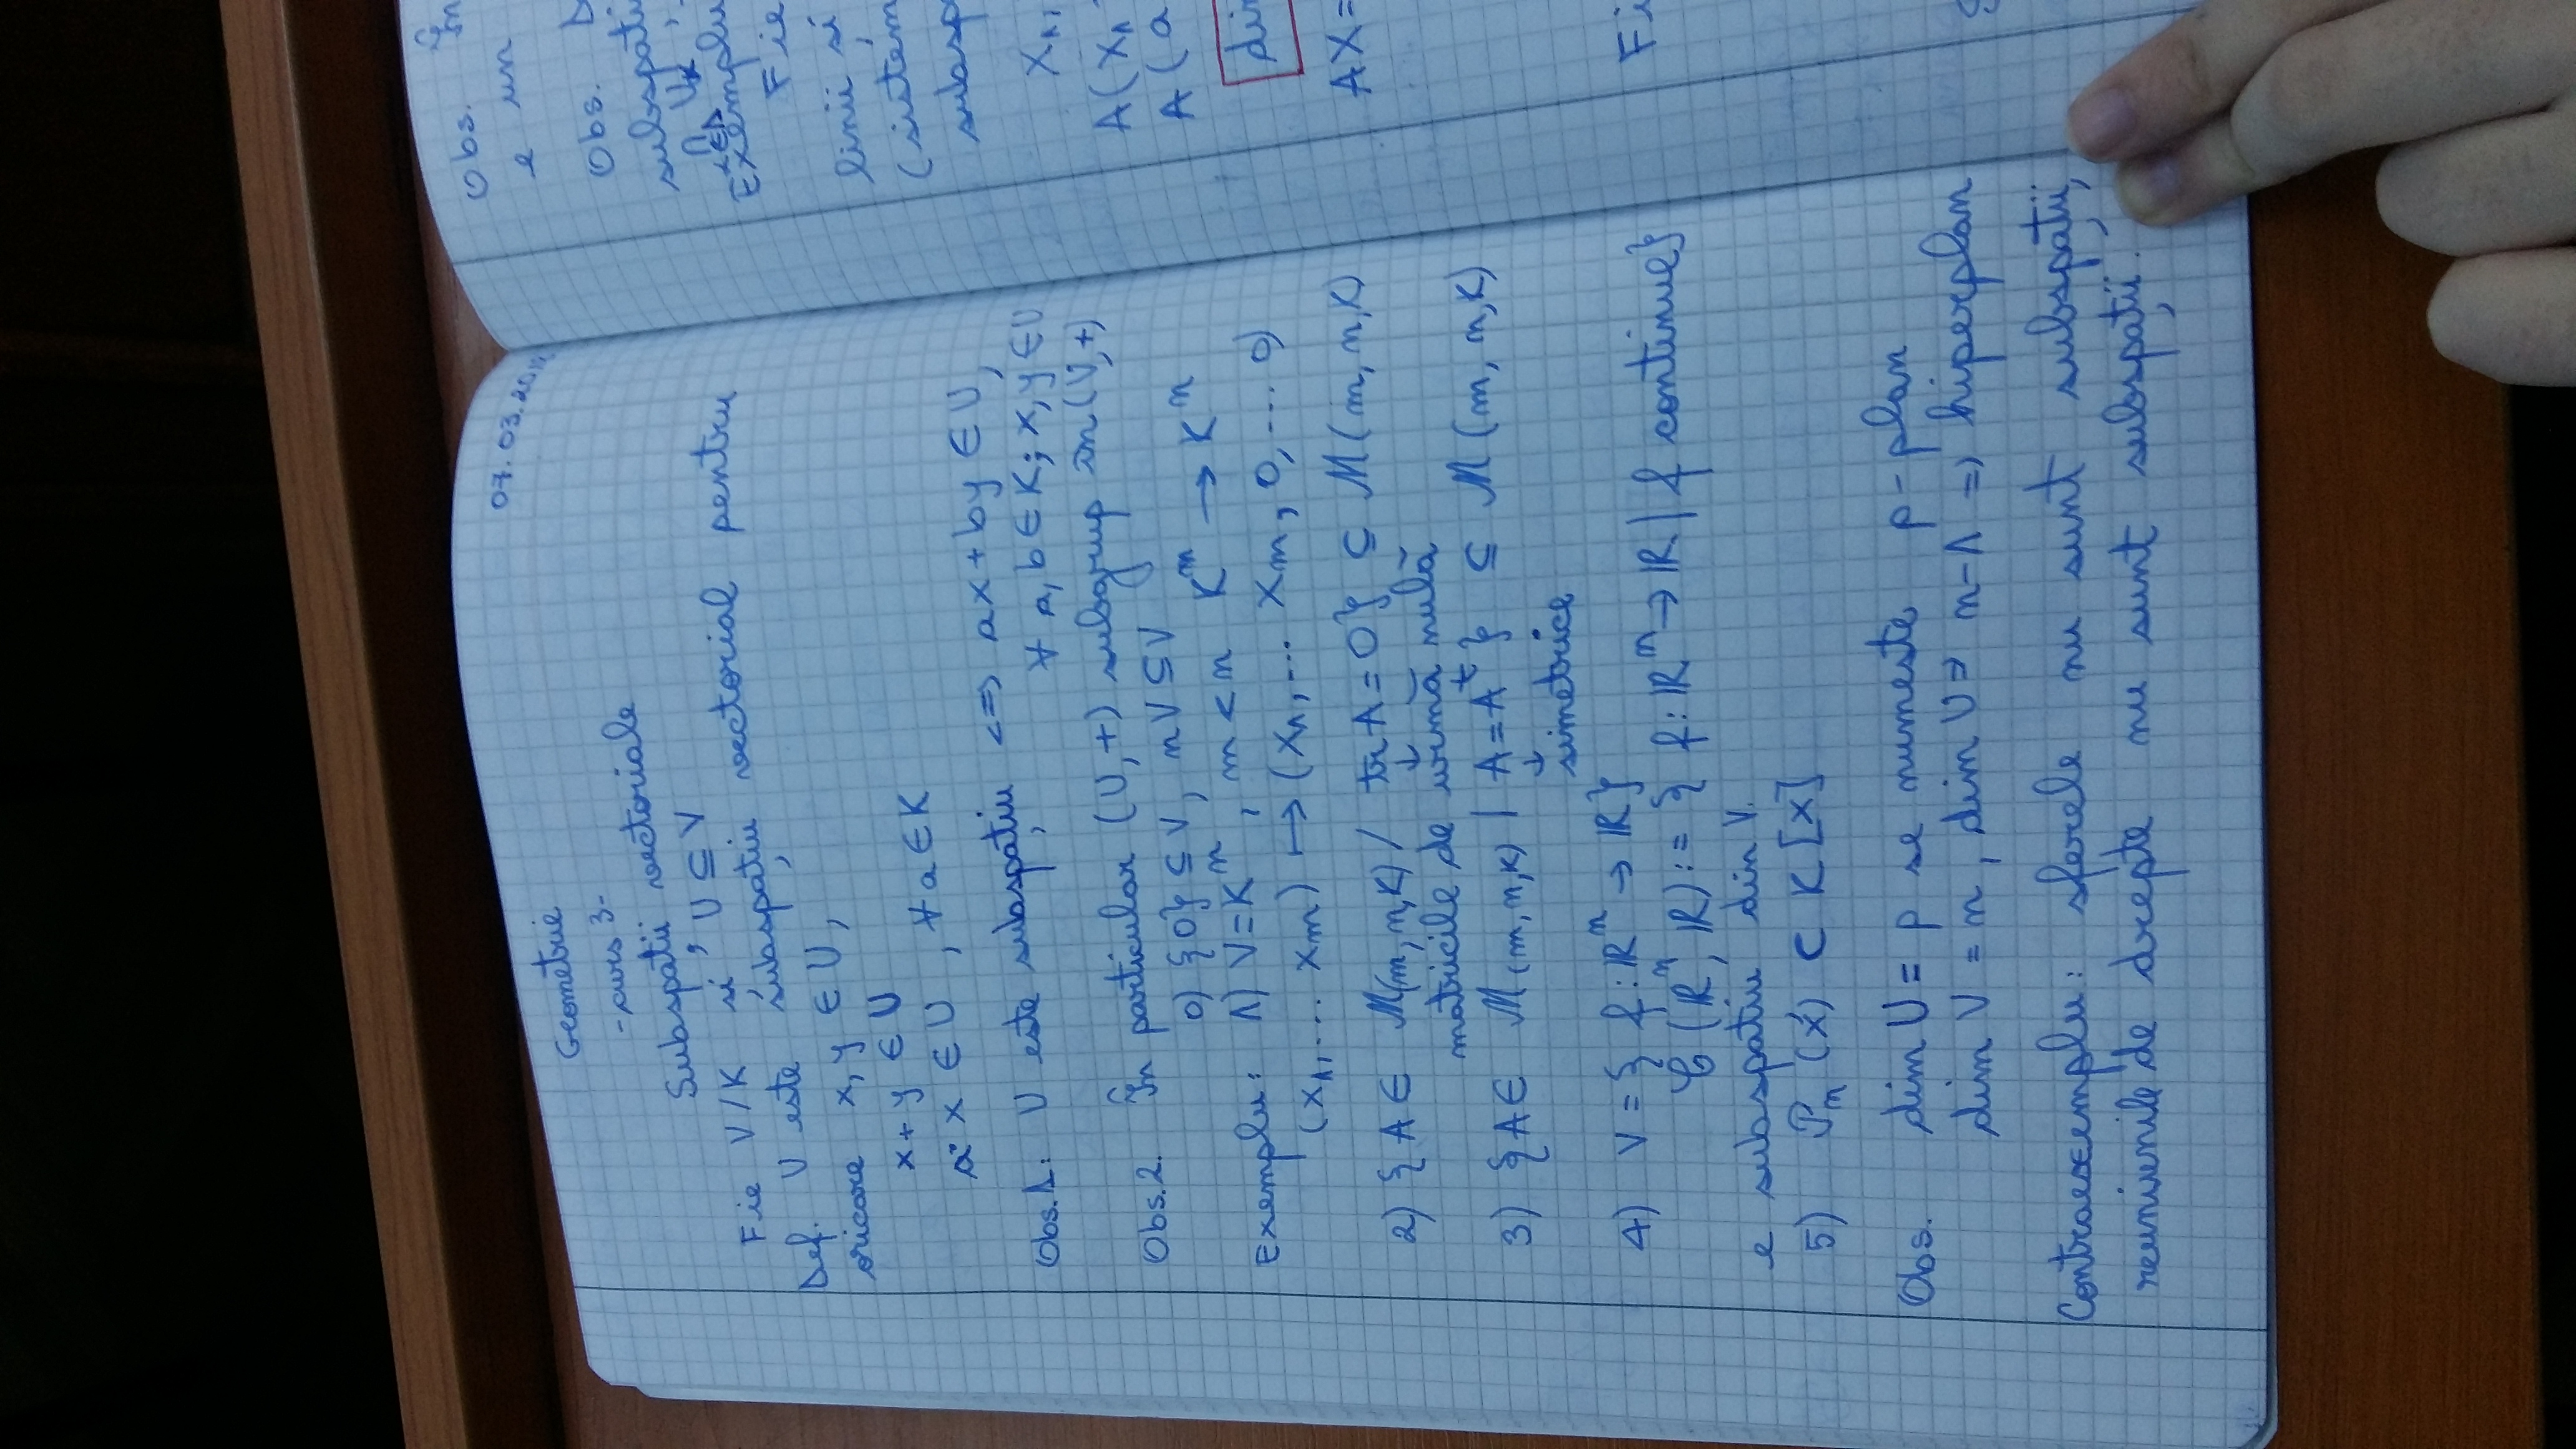 07.03.201
Geometrie
-curs 3-
Subspații vectoriale
Fie V/K și U ⊆ V
Def. U este subspațiu vectorial pentru
oricare x, y ∈ U,
x+y ∈ U
a·x ∈ U , ∀ a ∈ K
Obs.1. U este subspațiu <=> ax+by ∈ U,
∀ a, b ∈ K; x, y ∈ U
Obs.2. În particular (U,+) subgrup în (V,+)
0) {0} ⊆ V, V ⊆ V
Exemplu: 1) V=K^n, m<n K^m → K^n
(x₁,... xm) ↦ (x₁,... xm, 0,... 0)
2) {A ∈ M(m,n,K) / tr A = 0} ⊆ M(m,n,K)
↓
matricile de urmă nulă
3) {A ∈ M(m,n,K) | A=A^t} ⊆ M(m,n,K)
↓
simetrice
4) V = { f: ℝ^n → ℝ}
C(ℝ^n, ℝ) := { f: ℝ^n → ℝ | f continue}
e subspatiu din V.
5) Pn (x) ⊂ K[X]
Obs. dim U = p se numeste p-plan
dim V = n, dim U = n-1 => hiperplan
Contraexemplu: sferele nu sunt subspații,
reuniunile de drepte nu sunt subspații.
Obs. În
e un
Obs.
subspați
∩ Uα
α∈Λ
Exemplu
Fie
linii și
(sistem
subsp
X₁,
A(X₁
A(a
dim
AX=
Fi